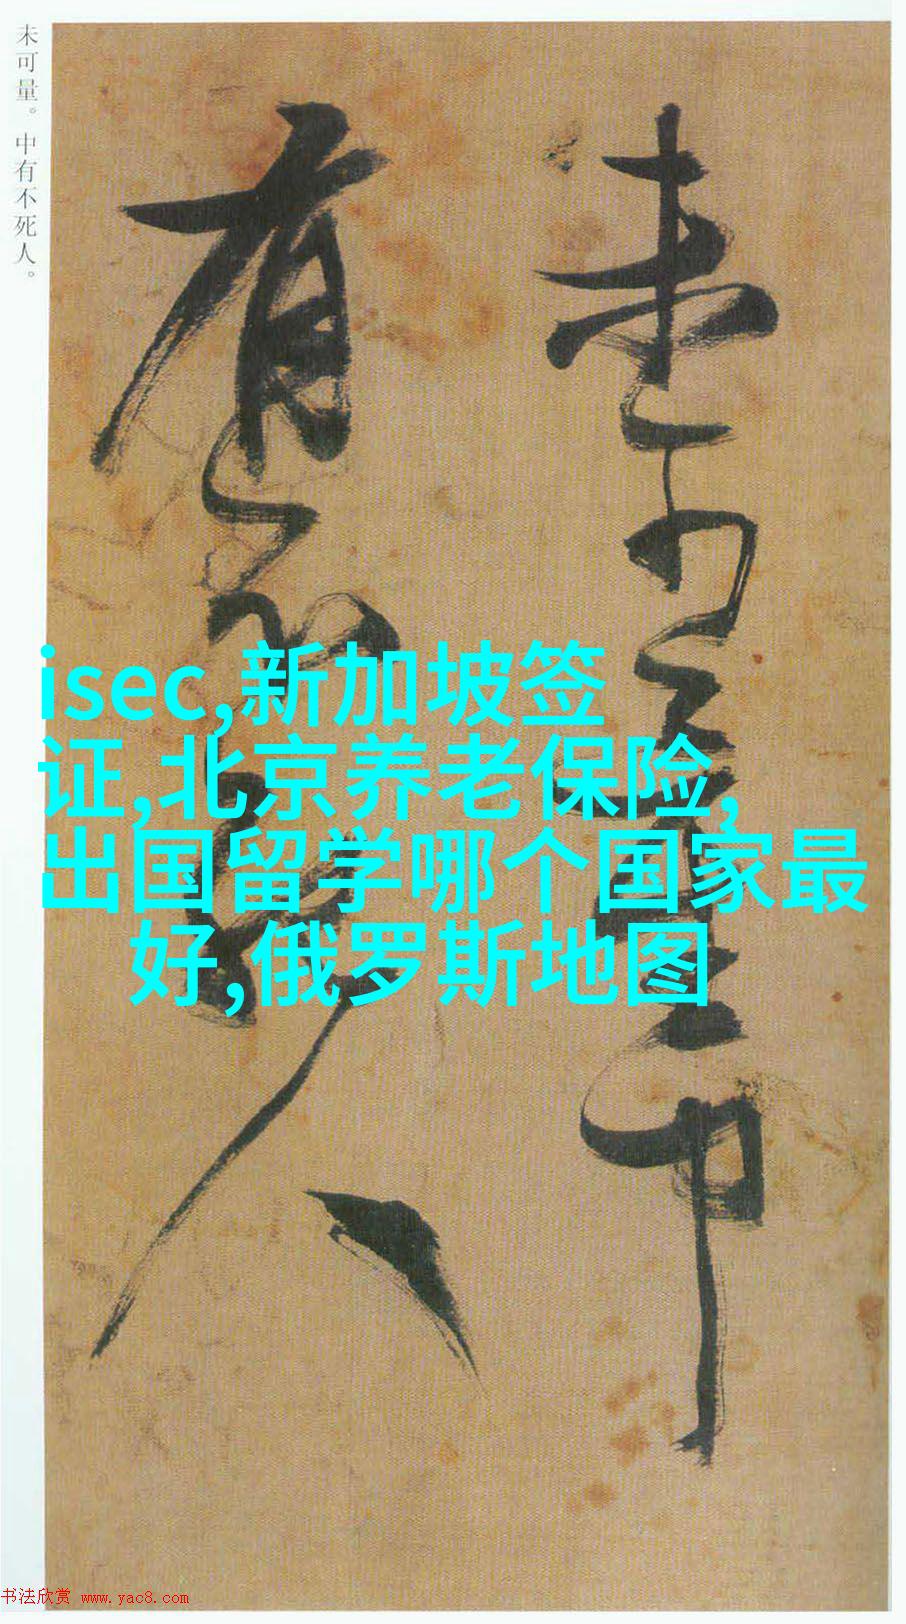 未可量。中有不死人。
未可量中
有不死人
isec,新加坡签
证,北京养老保险,
出国留学哪个国家最
好,俄罗斯地图
书法欣赏 www.yac8.com